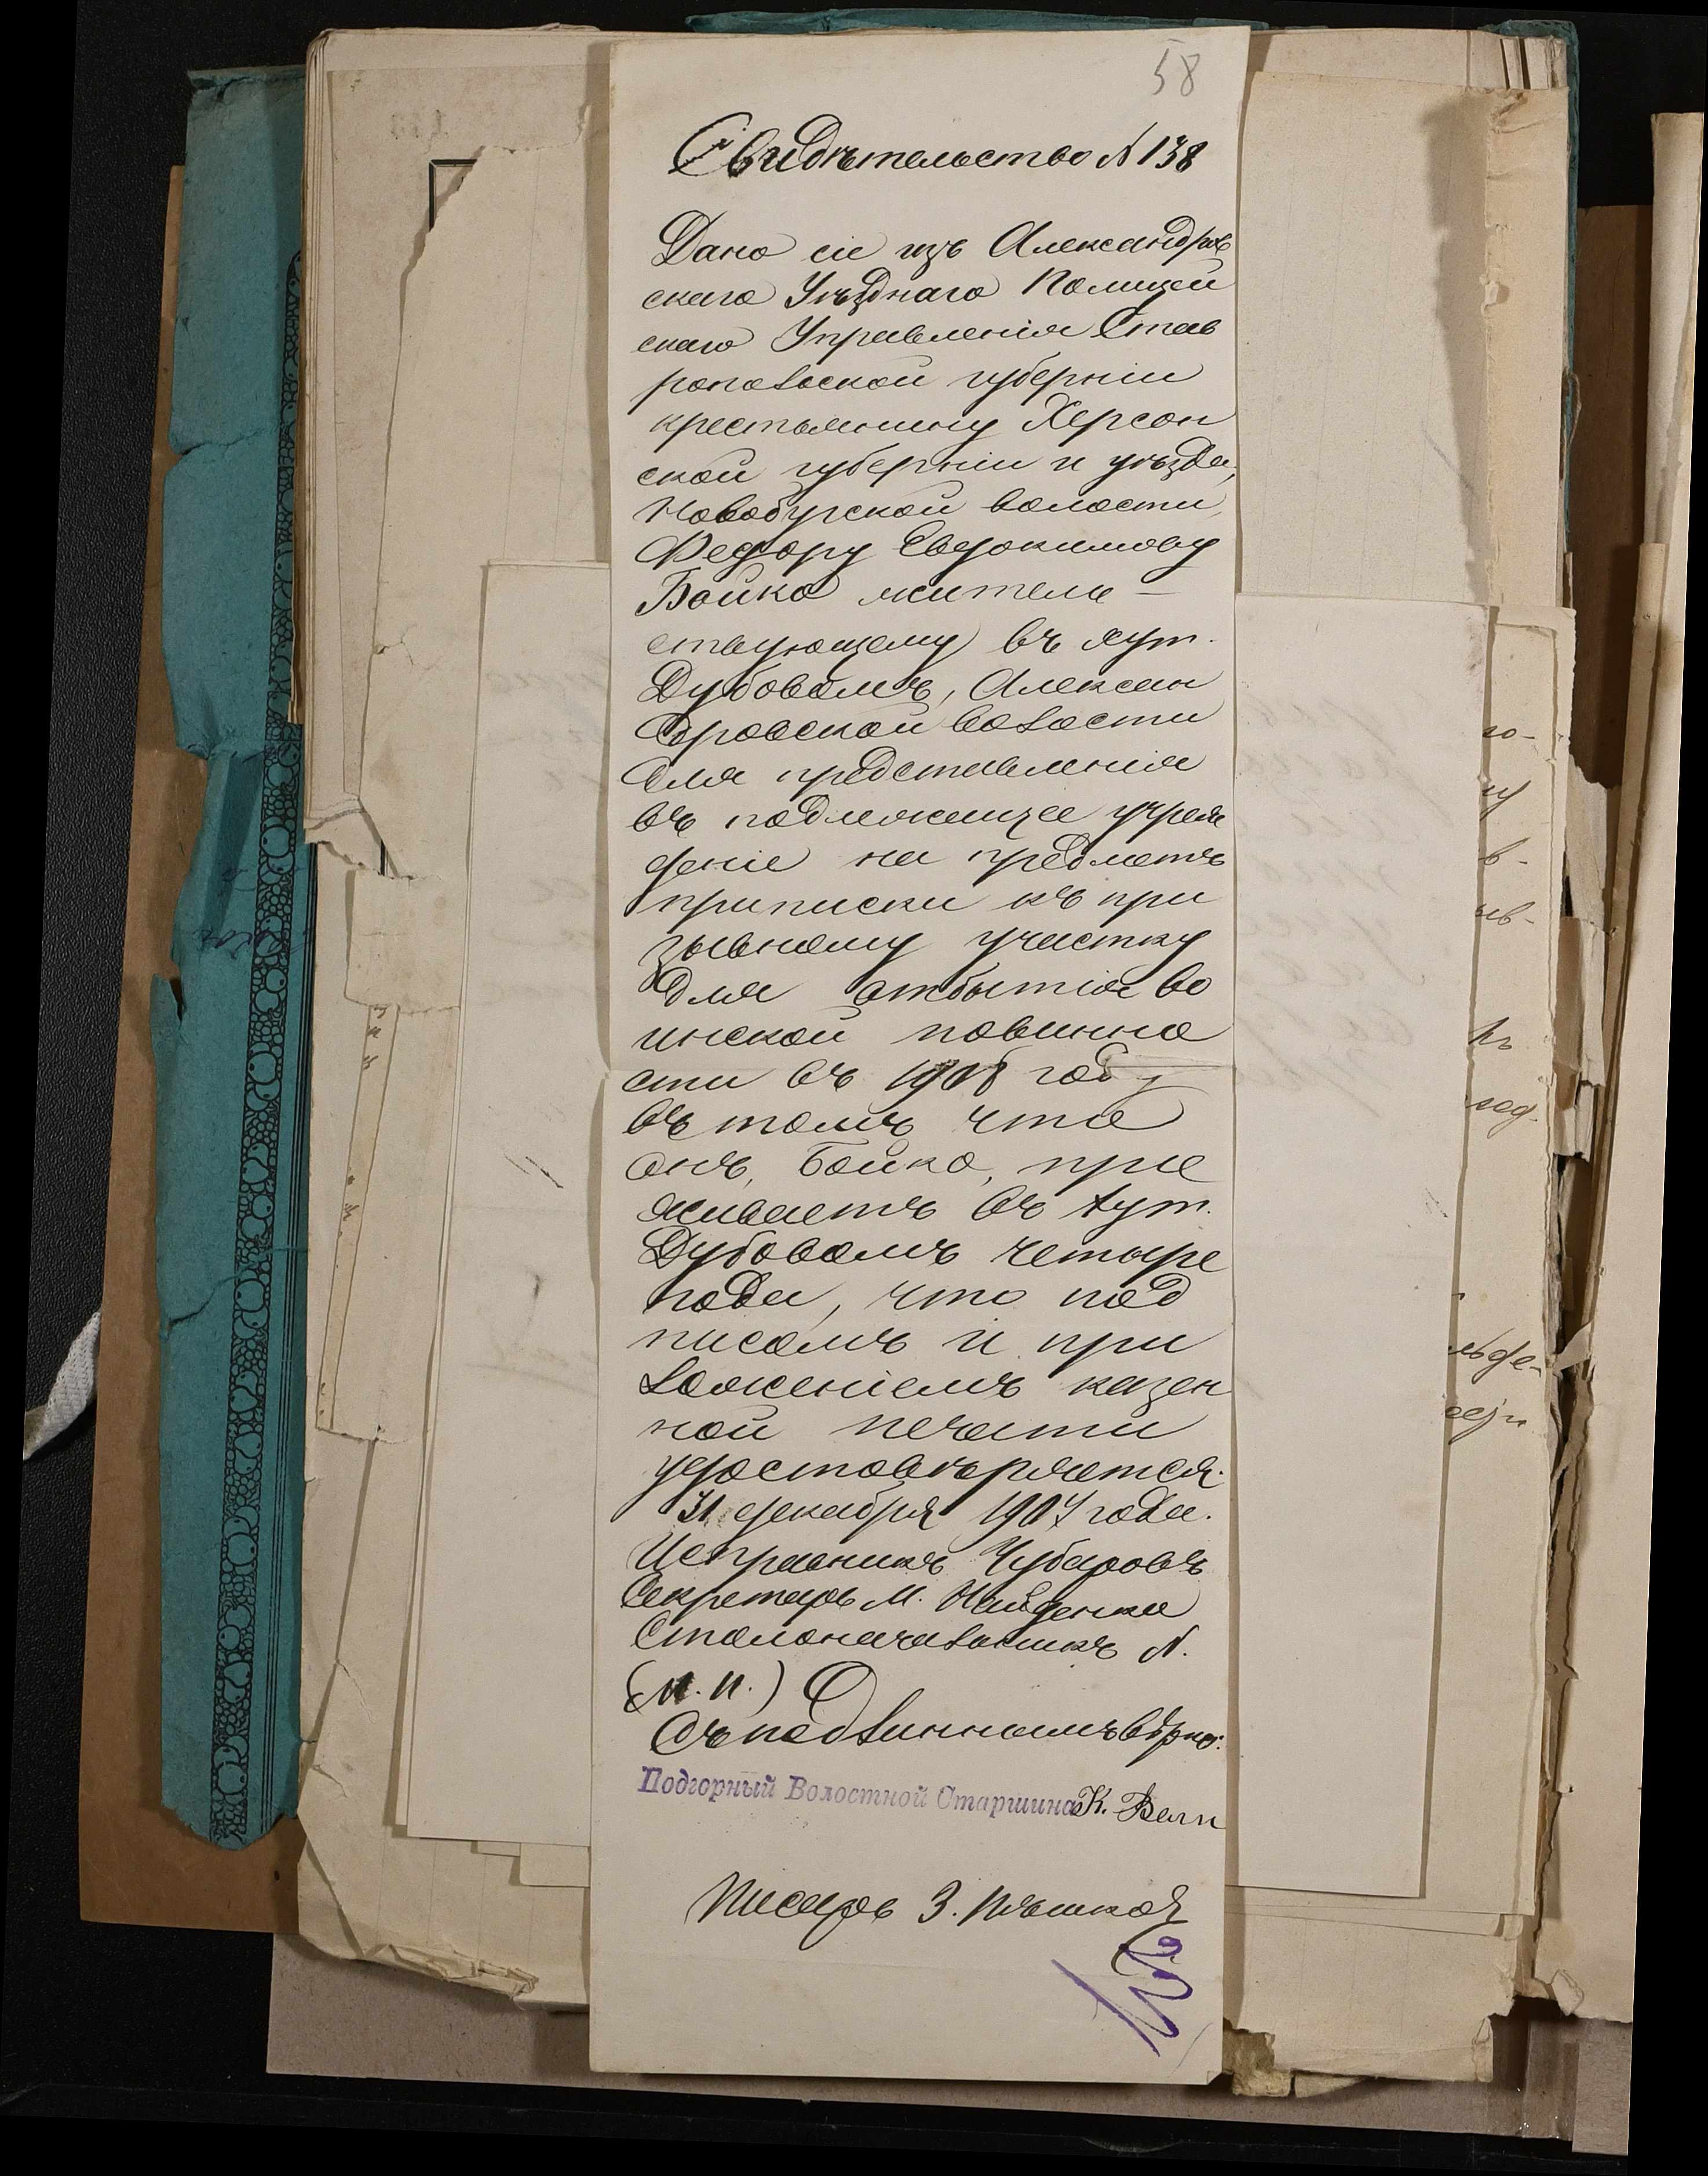 58
Свидѣтельство № 138
Дано сіе изъ Александров
скаго Уѣзднаго Полицей
скаго Управленія Став
ропольской губерніи
крестьянину Херсон
ской губерніи и уѣзда,
Новобугской волости,
Федору Евдокимову
Бойко житель-
ствующему въ хут.
Дубовомъ, Алексан
дровской волости
для представленія
въ подлежащее учреж
деніе на предметъ
приписки къ при
зывному участку
для отбытія во
инской повинно
сти въ 1908 году
въ томъ что
онъ, Бойко, про
живаетъ въ хут.
Дубовомъ четыре
года, что под
писомъ и при
ложеніемъ казен
ной печати
удостовѣряется.
31 декабря 1907 года.
Исправникъ Чубаровъ
Секретарь М. Найденко
Столоначальникъ N.
(М.П.)
Съ подлиннымъ вѣрно:
Подгорный Волостной Старшина К.
Писарь З.
го-
в-
ыв-